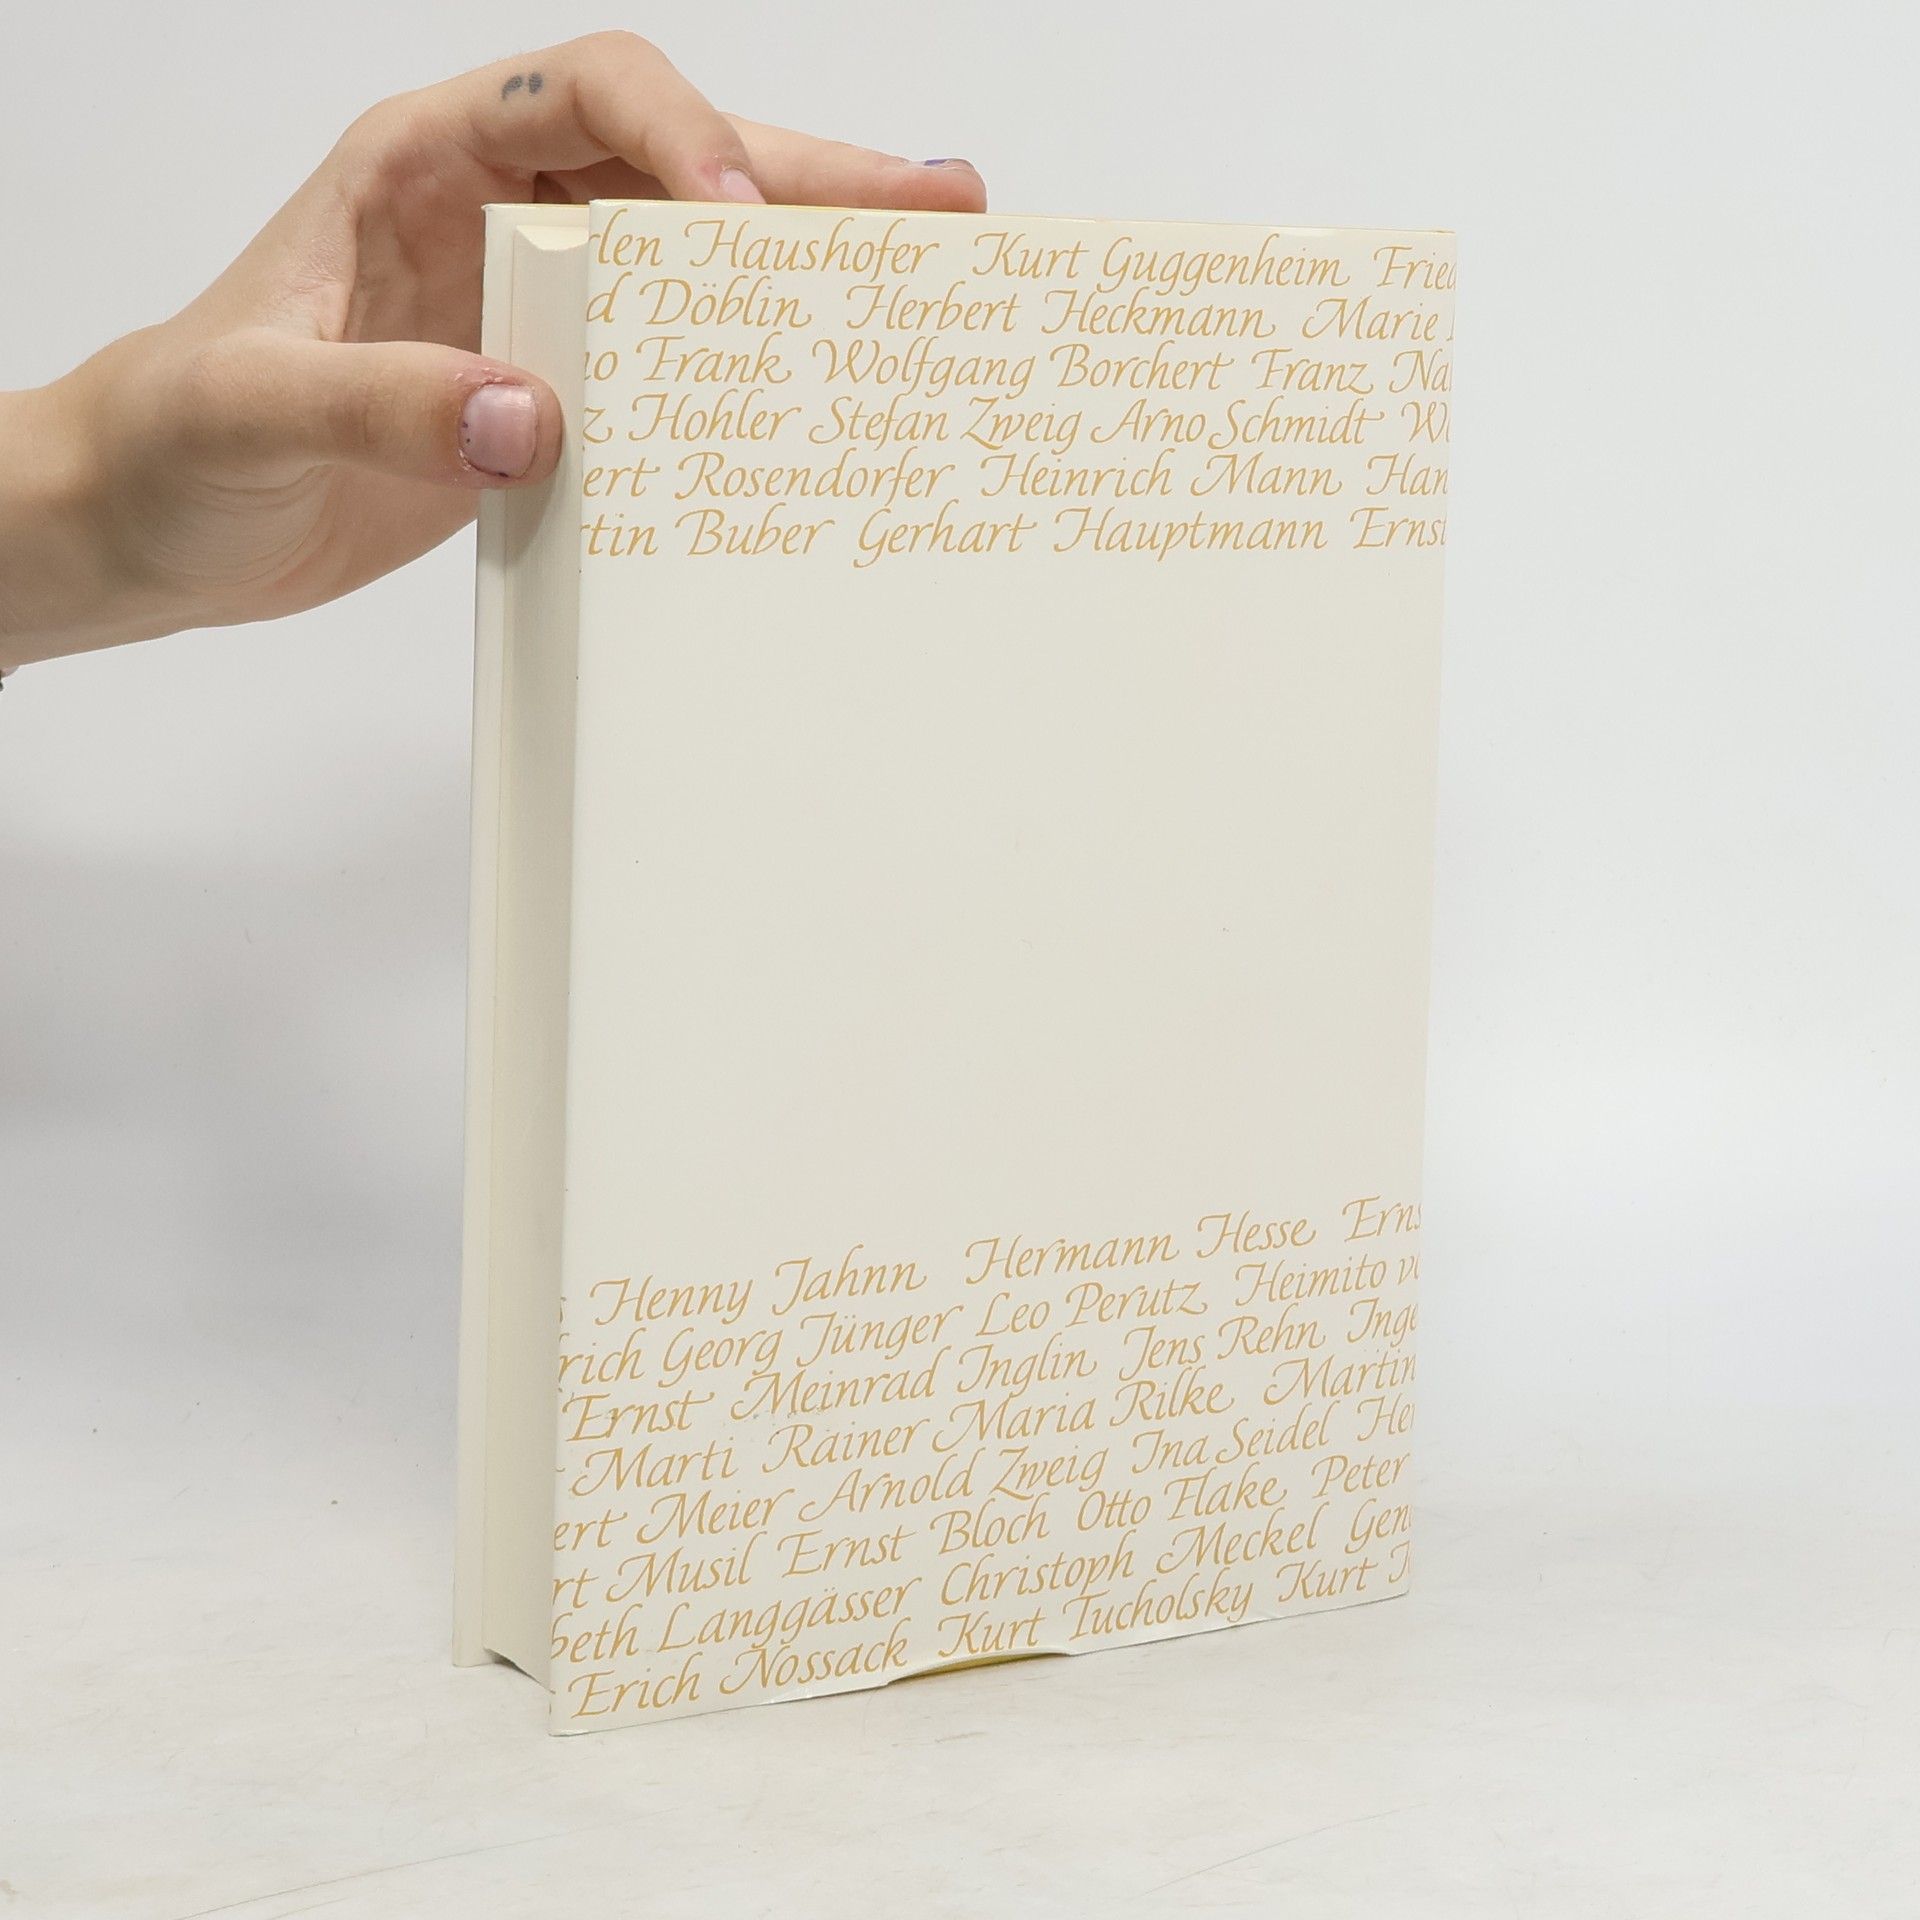 Haushofer Kurt Guggenheim
Döblin Herbert Heckmann Marie
Frank Wolfgang Borchert Franz
Hohler Stefan Zweig Arno Schmidt
Rosendorfer Heinrich Mann
Buber Gerhart Hauptmann Ernst
Henny Jahnn Hermann Hesse
Georg Jünger Leo Perutz Heimito
Ernst Meinrad Inglin Jens Rehn
Marti Rainer Maria Rilke Martin
Meier Arnold Zweig Ina Seidel
Musil Ernst Bloch Otto Flake Peter
Langgässer Christoph Meckel
Erich Nossack Kurt Tucholsky Kurt